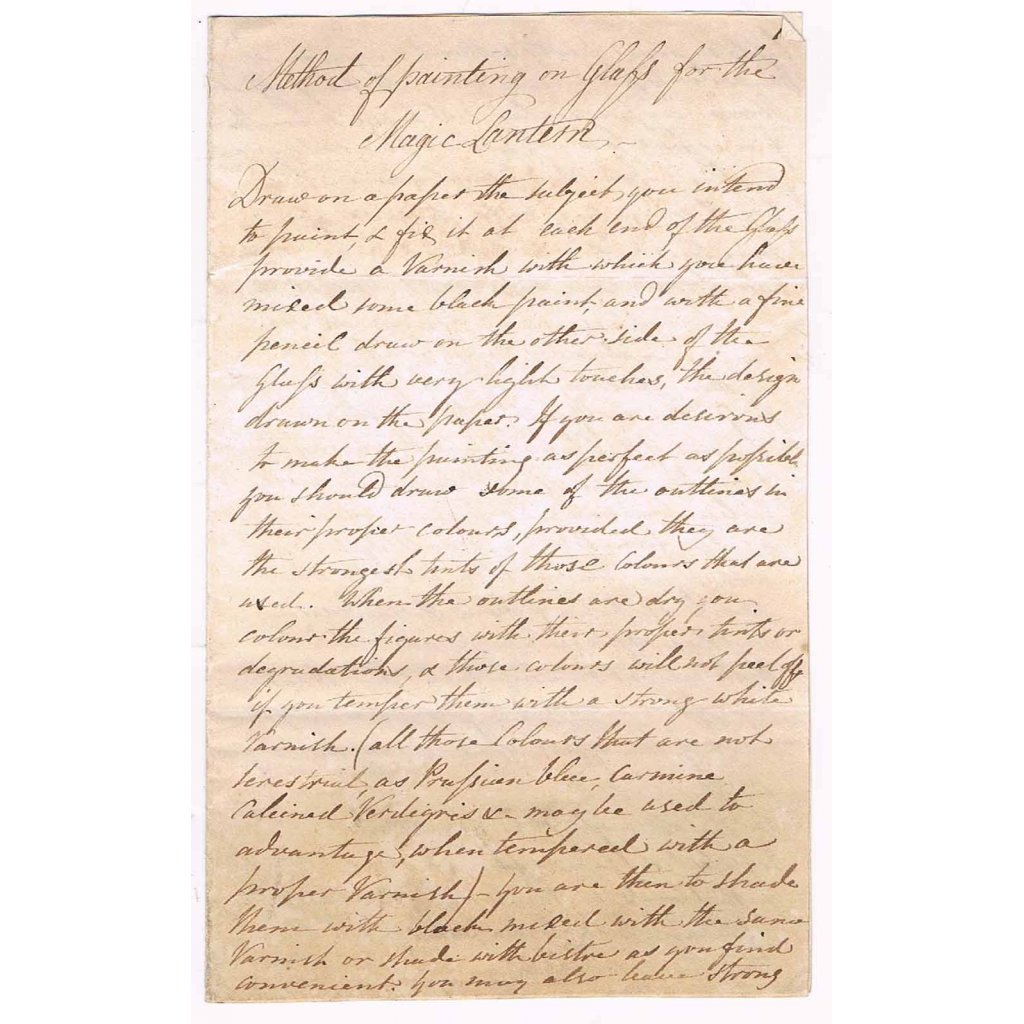 Method of painting on Glaſs for the
Magic Lantern.-
Draw on a paper the subject you intend
to paint, & fix it at each end of the Glaſs
provide a Varnish with which you have
mixed some black paint, and with a fine
pencil draw on the other side of the
Glaſs with very light touches, the design
drawn on the paper. If you are desirous
to make the painting as perfect as poſsible
you should draw some of the outlines in
their proper colours, provided they are
the strongest tints of those Colours that are
used. When the outlines are dry you
colour the figures with their proper tints or
degradations, & those colours will not peel off
if you temper them with a strong white
Varnish. (all those Colours that are not
terestrial, as Pruſsian blue, Carmine
Calcined Verdigris &- may be used to
advantage, when tempered with a
proper Varnish)- you are then to shade
them with black mixed with the same
Varnish or shade with bistre as you find
convenient. you may also leave strong